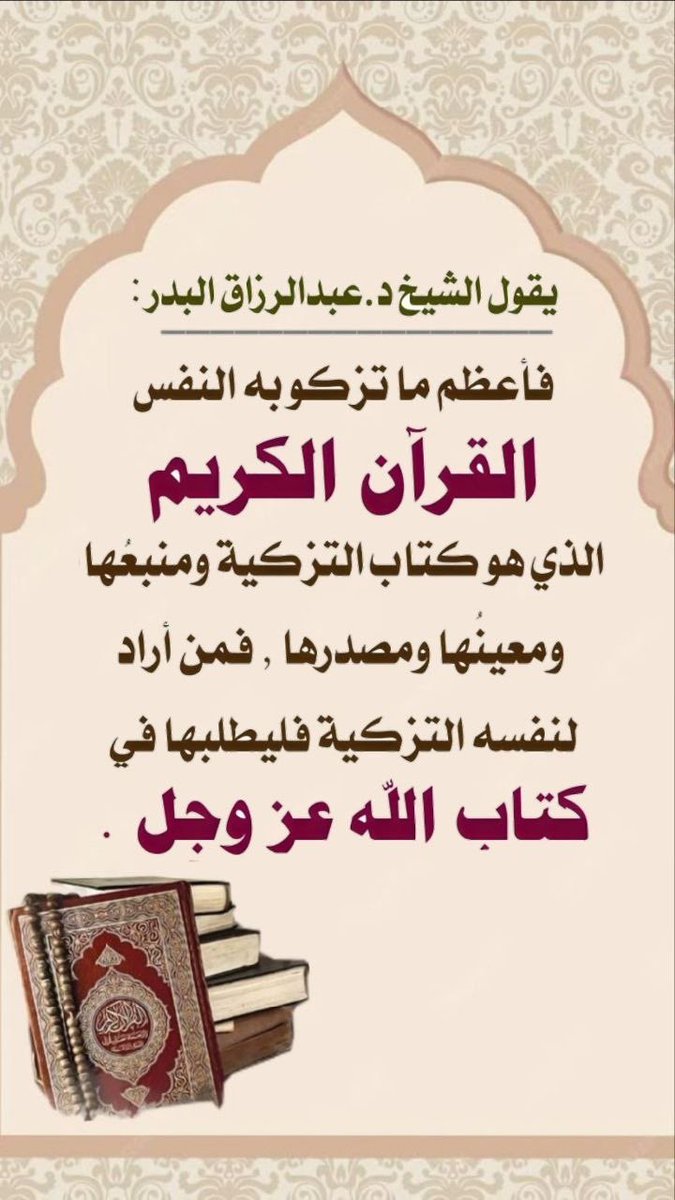 يقول الشيخ د.عبدالرزاق البدر:
فأعظم ما تزكو به النفس
القرآن الكريم
الذي هو كتاب التزكية ومنبعُها
ومعينُها ومصدرها , فمن أراد
لنفسه التزكية فليطلبها في
كتاب الله عز وجل .
القرآن الكريم